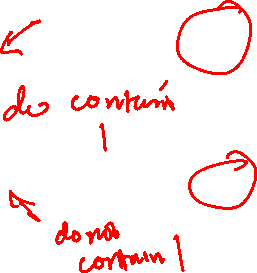 do contain
do not
contain